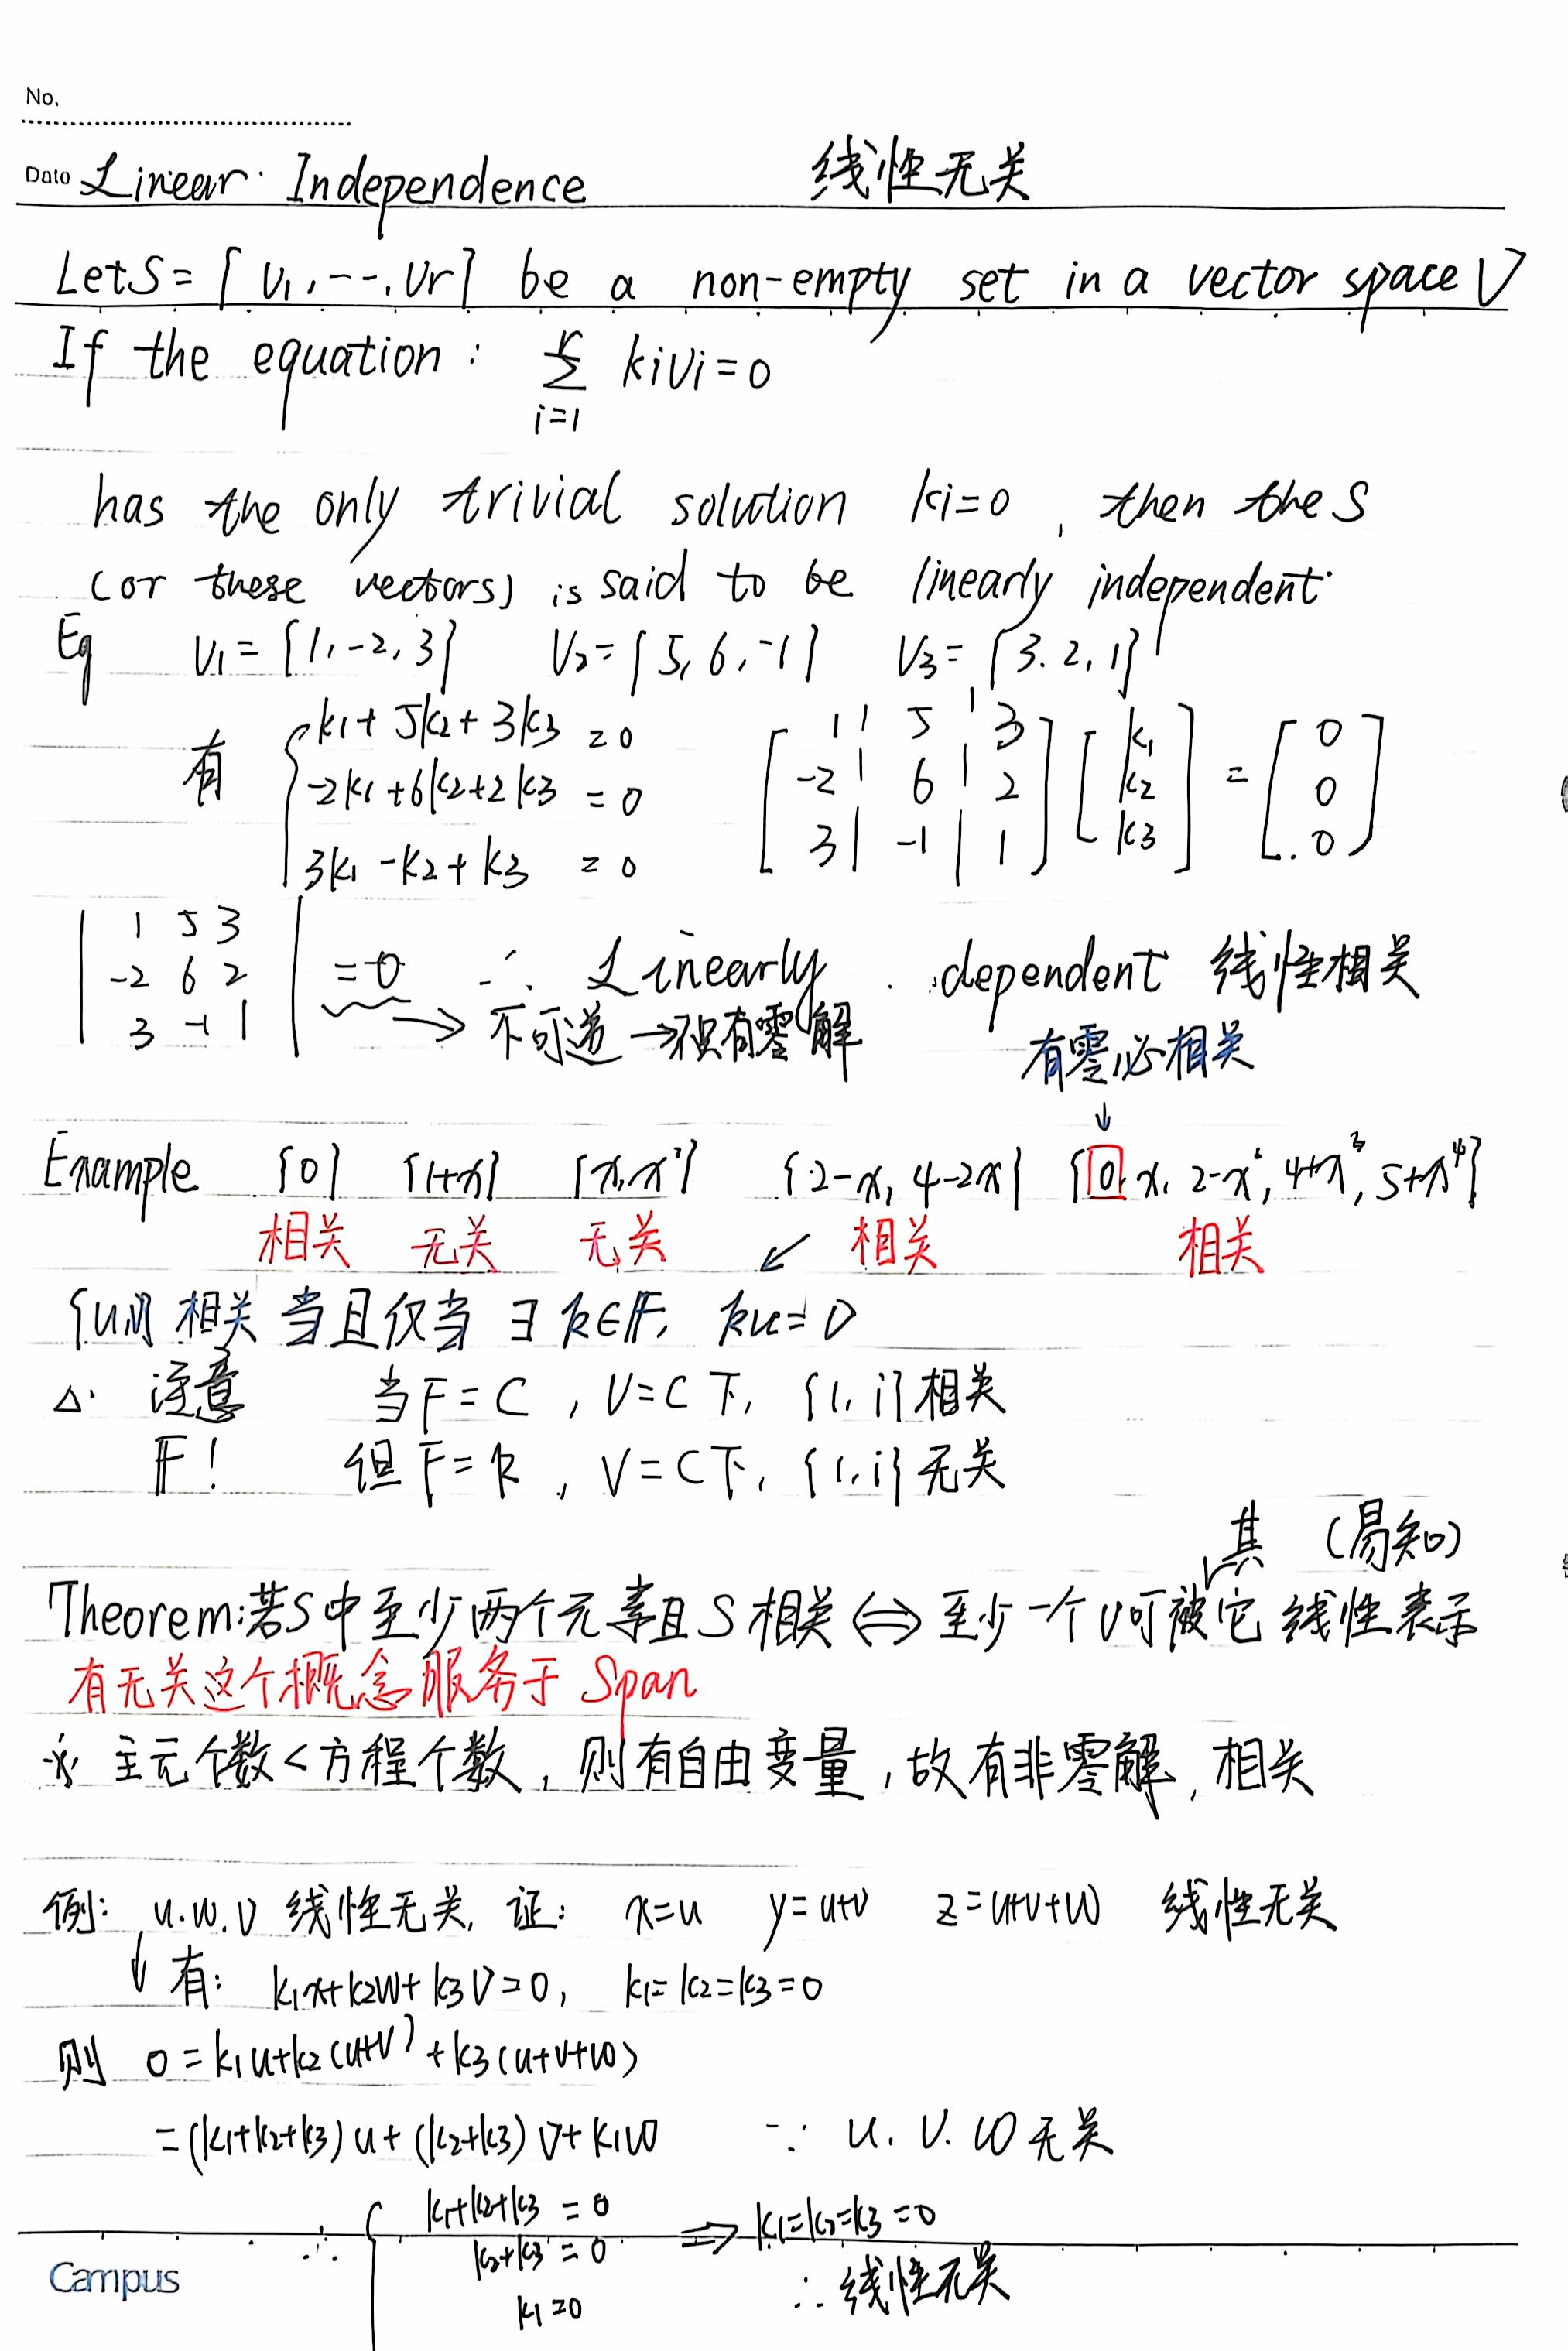 No.
Date Linear Independence 线性无关
Let S = { v₁, ---, vr } be a non-empty set in a vector space V
If the equation : Σ_{i=1}^{r} kivi = 0
has the only trivial solution ki=0 , then the S
(or these vectors) is said to be linearly independent.
Eg v₁ = {1, -2, 3} v₂ = {5, 6, -1} v₃ = {3. 2, 1}
有 { k₁ + 5k₂ + 3k₃ = 0
-2k₁ + 6k₂ + 2k₃ = 0
3k₁ - k₂ + k₃ = 0
[ 1 5 3 ] [ k₁ ] = [ 0 ]
[ -2 6 2 ] [ k₂ ] [ 0 ]
[ 3 -1 1 ] [ k₃ ] [ 0 ]
| 1 5 3 |
| -2 6 2 | = 0 ∴ Linearly dependent 线性相关
| 3 -1 1 |
→ 不可逆 → 不只有零解
有零必相关
↓
Example {0} {1+x} {x, x²} {2-x, 4-2x} {0, x, 2-x², 4+x³, 5+x⁴}
相关 无关 无关 ↙ 相关 相关
相关 当且仅当 ∃ k∈F, ku=0
△ 注意 当F = C , V=C 下, {1, i} 相关
F! 但F = R , V=C下, {1, i} 无关
其 (易知)
Theorem: 若S中至少两个元素且S相关 ⇔ 至少一个v可被它线性表示
有无关这个概念服务于 Span
※ 主元个数 < 方程个数, 则有自由变量, 故有非零解, 相关
例: u. w. v 线性无关, 证: x=u y=u+v z=u+v+w 线性无关
↓ 有: k₁x+k₂w+k₃v=0, k₁=k₂=k₃=0
则 0 = k₁u+k₂(u+v)+k₃(u+v+w)
= (k₁+k₂+k₃)u + (k₂+k₃)v + k₁w ∵ u. v. w 无关
∴ { k₁+k₂+k₃ = 0
k₂+k₃ = 0 ⇒ k₁=k₂=k₃=0
k₁=0 ∴ 线性无关
Campus